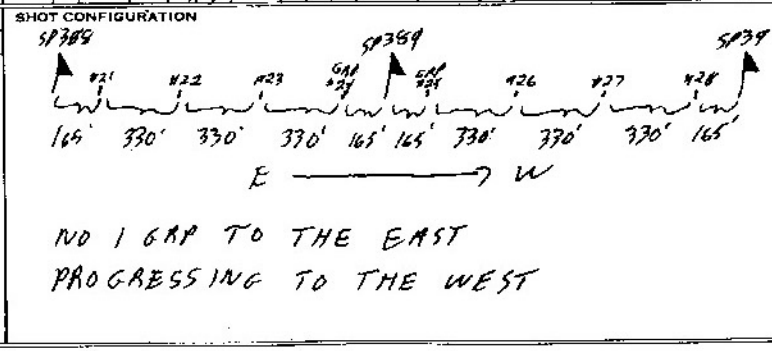 SHOT CONFIGURATION
SP388 SP389 SP39
#21 #22 #23 GRP #24 GRP #25 #26 #27 #28
165' 330' 330' 330' 165' 165' 330' 330' 330' 165'
E → W
NO 1 GRP TO THE EAST
PROGRESSING TO THE WEST